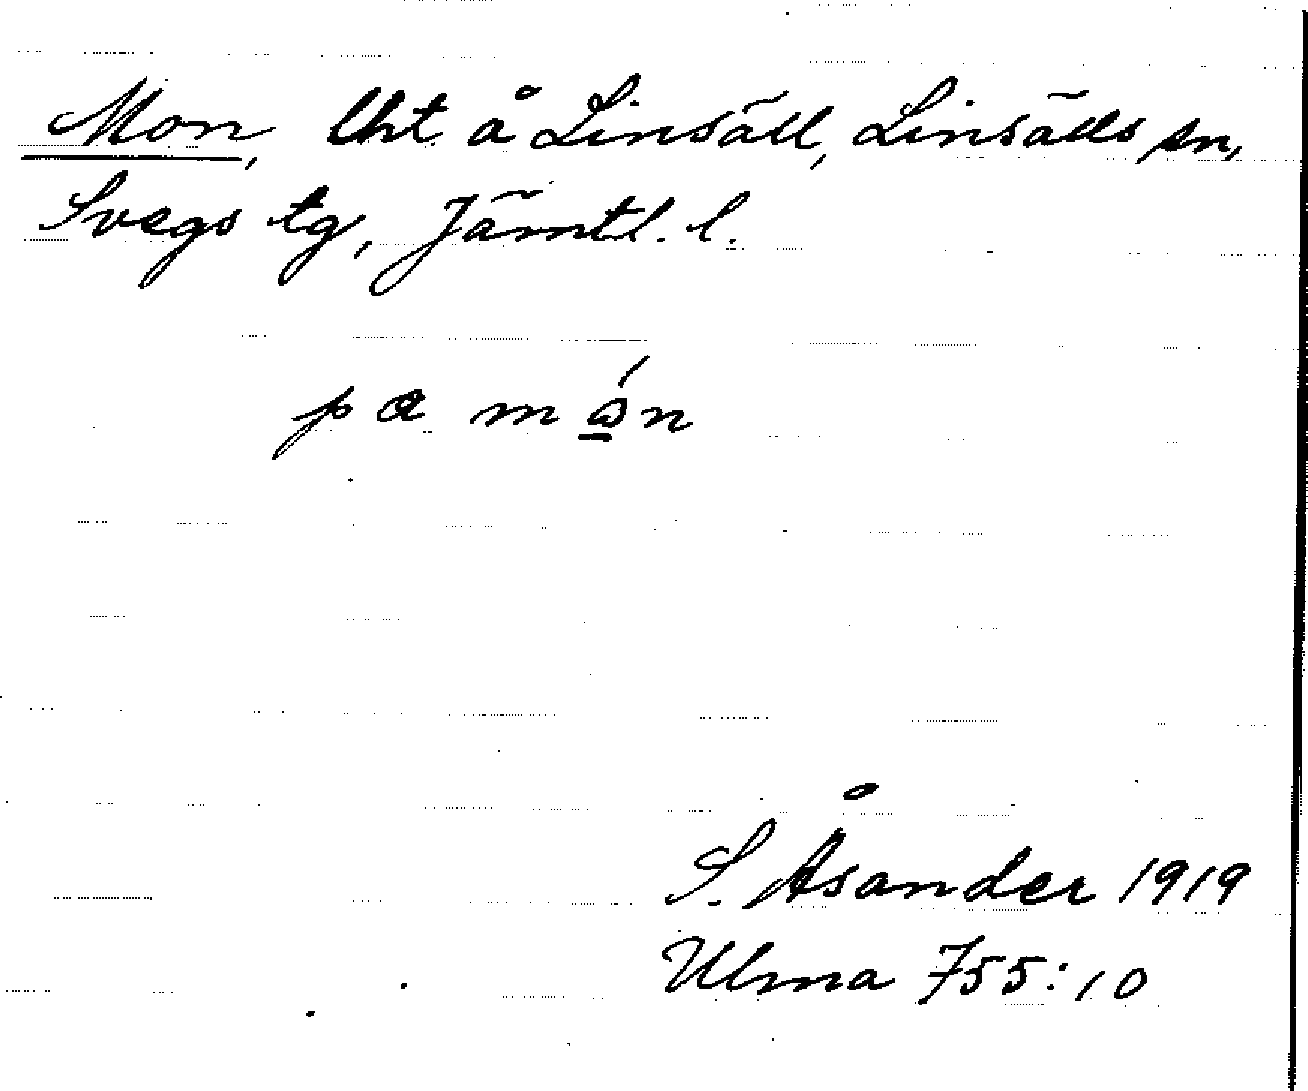 Mon, lht å Linsäll, Linsälls sn,
Svegs tg, Jämtl. l.
pa mɷ́n
S. Åsander 1919
Ulma 755:10